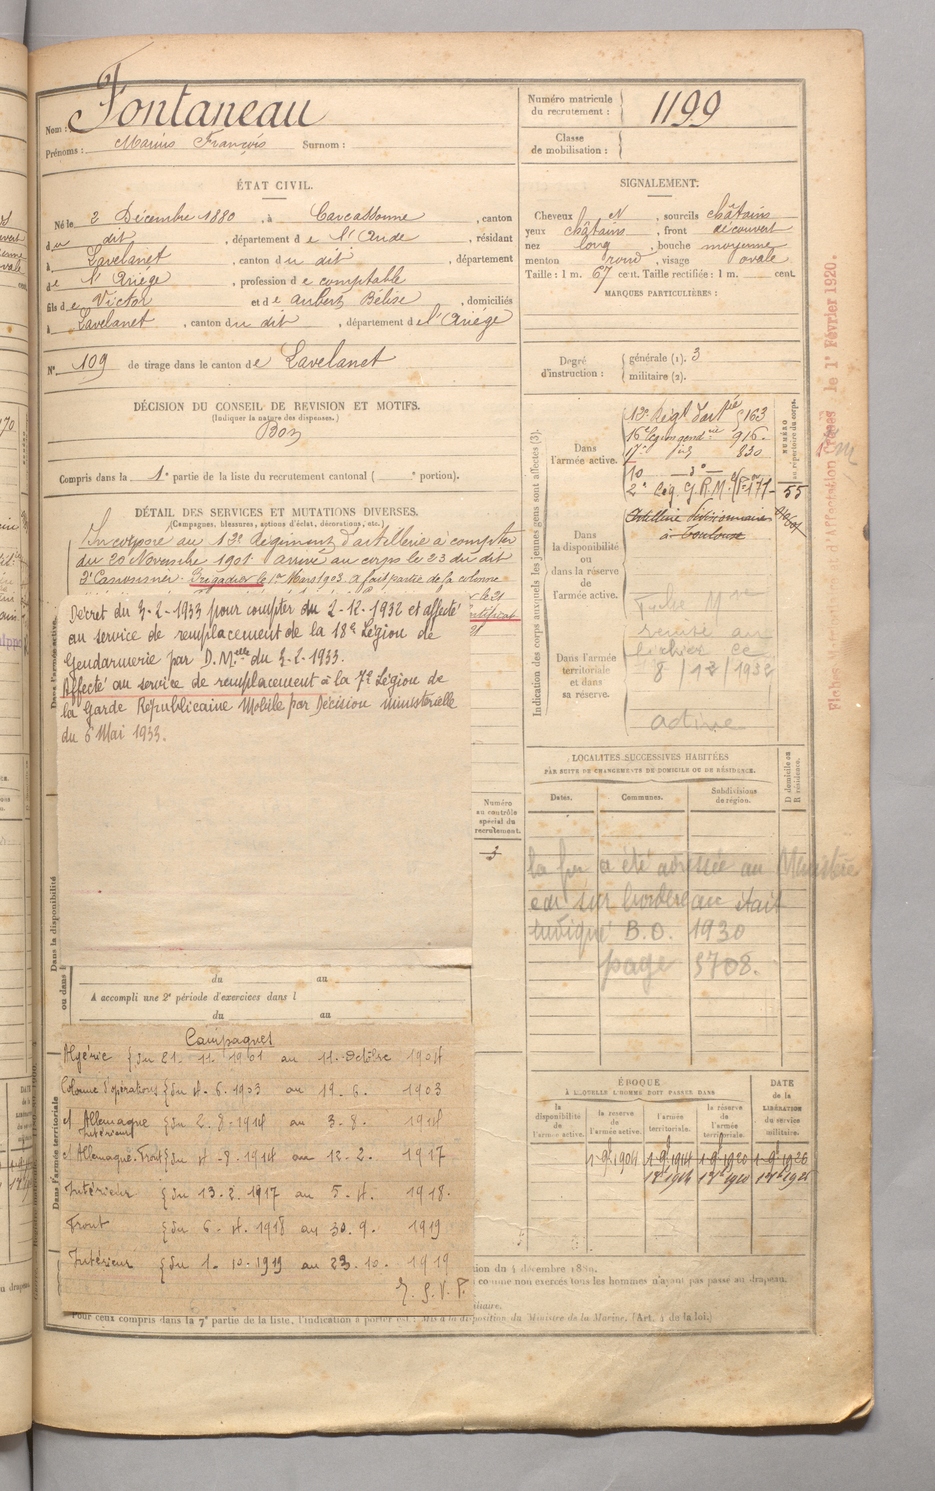 Nom : Fontaneau
Prénoms : Marius François Surnom :
Numéro matricule du recrutement : 1199
Classe de mobilisation :
ÉTAT CIVIL.
Né le 2 Décembre 1880, à Carcassonne, canton
du dit, département de l'Aude, résidant
à Lavelanet, canton du dit, département
de l'Ariége, profession de comptable
fils de Victor et de Aubert Bélise, domiciliés
à Lavelanet, canton du dit, département de l'Ariége
N° 109 de tirage dans le canton de Lavelanet
SIGNALEMENT.
Cheveux N, sourcils châtains
yeux châtains, front découvert
nez long, bouche moyenne
menton rond, visage ovale
Taille : 1 m. 67 cent. Taille rectifiée : 1 m. cent.
MARQUES PARTICULIÈRES :
Degré d'instruction : générale (1). 3
militaire (2).
DÉCISION DU CONSEIL DE REVISION ET MOTIFS.
(Indiquer la nature des dispenses.)
Bon
Compris dans la 1e partie de la liste du recrutement cantonal ( e portion).
DÉTAIL DES SERVICES ET MUTATIONS DIVERSES.
(Campagnes, blessures, actions d'éclat, décorations, etc.)
Incorporé au 13e Régiment d'artillerie à compter
du 20 Novembre 1901 arrivé au corps le 23 du dit
2e Canonnier. Brigadier le 1er Mars 1903. a fait partie de la colonne
Décret du 3-2-1933 pour compter du 2-12-1932 et affecté
au service de remplacement de la 18e Légion de
Gendarmerie par D. Melle du 3-2-1933.
Affecté au service de remplacement à la 7e Légion de
la Garde Républicaine Mobile par Décision ministerielle
du 6 Mai 1933.
Indication des corps auxquels les jeunes gens sont affectés (3).
Dans l'armée active.
13e Régt d'artie 163
916.
830
55
NUMÉRO au répertoire du corps.
Dans la disponibilité ou dans la réserve de l'armée active.
Artillerie divisionnaire
à Toulouse
Dans l'armée territoriale et dans sa réserve.
8/12/1932
active
le 1er Février 1920.
LOCALITÉS SUCCESSIVES HABITÉES
PAR SUITE DE CHANGEMENTS DE DOMICILE OU DE RÉSIDENCE.
D domicile ou R résidence.
Dates. Communes. Subdivisions de région.
a été adressée au Ministère
sur bordereau était
indiqué B.O. 1930
page 3708.
Numéro au contrôle spécial du recrutement.
3
Dans l'armée active.
Dans la disponibilité
ou dans
Dans l'armée territoriale
du au
A accompli une 2e période d'exercices dans l
du au
Campagnes
Algérie du 21. 11. 1901 au 11. Octobre 1904
Colonne d'opérations du 4. 6. 1903 au 19. 6. 1903
ct Allemagne Intérieur du 2. 8. 1914 au 3. 8. 1914
ct Allemagne. Front du 4 - 8. 1914 au 12. 2. 1917
Intérieur du 13. 2. 1917 au 5. 4. 1918.
Front du 6. 4. 1918 au 30. 9. 1919
Intérieur du 1. 10. 1919 au 23. 10. 1919
T. S. V. P.
ÉPOQUE
À LAQUELLE L'HOMME DOIT PASSER DANS
DATE de la LIBÉRATION du service militaire.
la disponibilité de l'armée active.
la réserve de l'armée active.
l'armée territoriale.
la réserve de l'armée territoriale.
tion du 4 décembre 1889.
comme non exercés tous les hommes n'ayant pas passé au drapeau.
Pour ceux compris dans la 7e partie de la liste, l'indication à porter est : Mis à la disposition du Ministre de la Marine. (Art. 4 de la loi.)